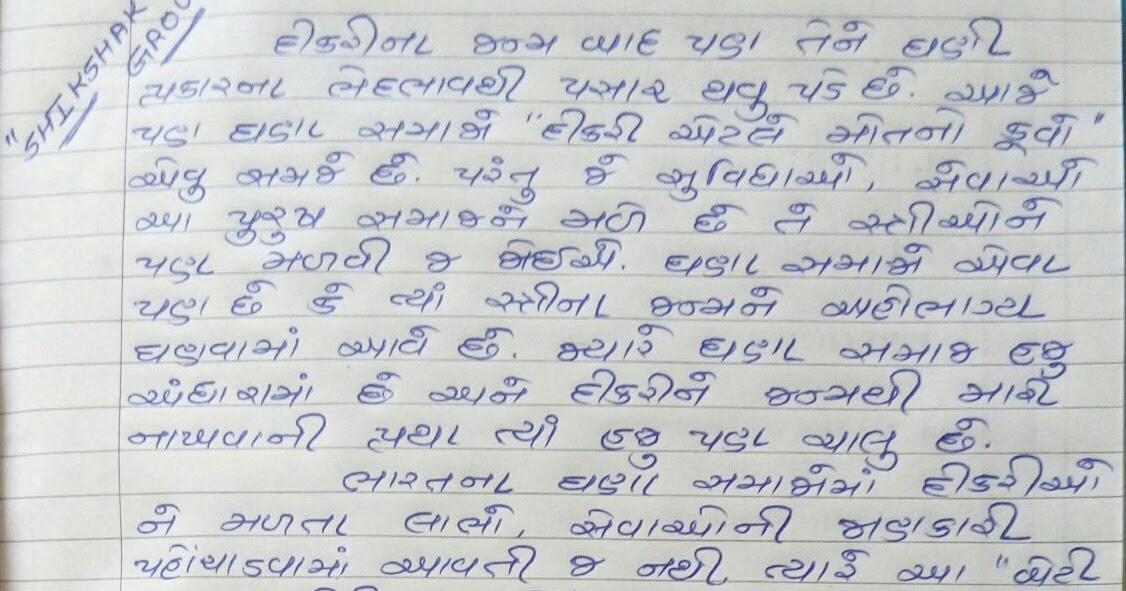 "SHIKSHAK
GROU
દીકરીના જન્મ બાદ પણ તેને ઘણી
પ્રકારના ભેદભાવથી પસાર થવુ પડે છે. આજે
પણ ઘણા સમાજો "દીકરી એટલે મોતનો કૂવો"
એવુ સમજે છે. પરંતુ જે સુવિધાઓ, સેવાઓ
આ પુરુષ સમાજને મળે છે તે સ્ત્રીઓને
પણ મળવી જ જોઈએ. ઘણા સમાજો એવા
પણ છે કે ત્યાં સ્ત્રીના જન્મને અહોભાગ્ય
ઘણવામાં આવે છે. જ્યારે ઘણા સમાજ હજુ
અંધારામાં છે અને દીકરીને જન્મથી મારી
નાખવાની પ્રથા ત્યાં હજુ પણ ચાલુ છે.
ભારતના ઘણા સમાજોમાં દીકરીઓ
ને મળતા લાભો, સેવાઓની જાણકારી
પહોંચાડવામાં આવતી જ નથી ત્યારે આ "બેટી